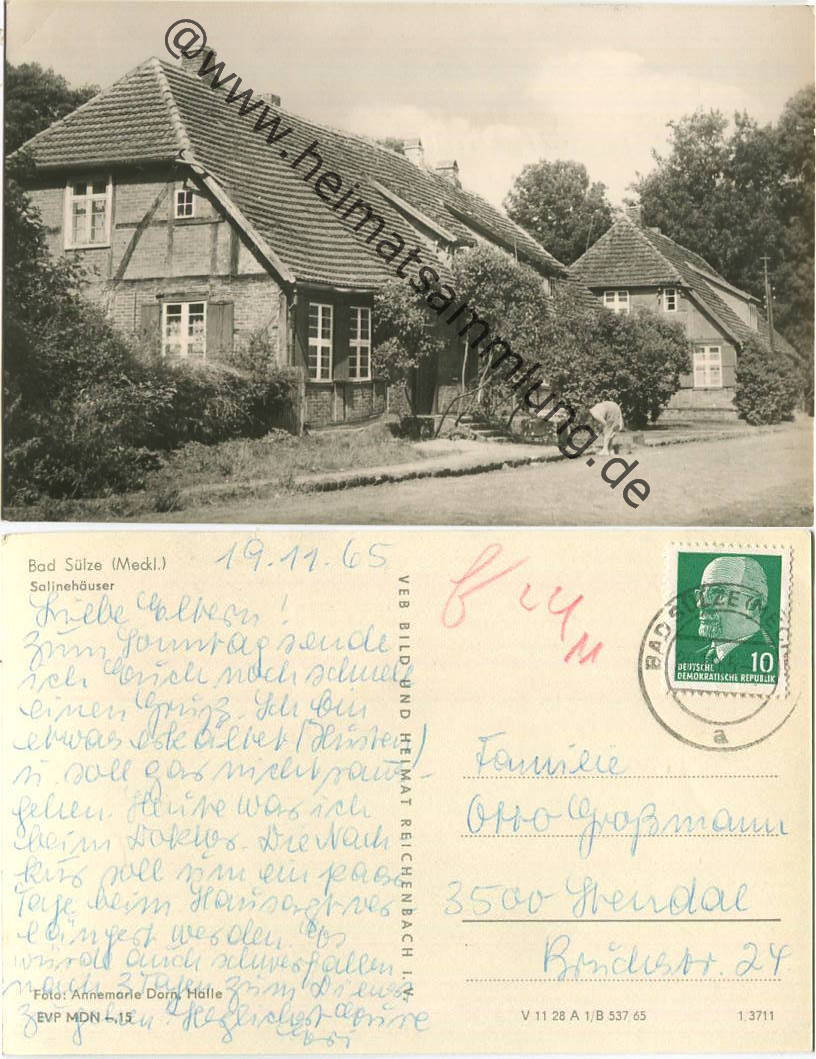 @www.heimatsammlung.de
Bad Sülze (Meckl.)
Salinehäuser
19.11.65
Liebe Eltern!
Zum Sonntag sende
ich Euch noch schnell
einen Gruß. Ich bin
etwas erkältet (Husten)
u. soll gar nicht raus-
gehen. Heute war ich
beim Doktor. Die Nach
kur soll um ein paar
Tage beim Hausarzt ver
längert werden. Es
würde auch schwer fallen
nach 3 Tagen zum Dienst
zu gehen. Herzlichst Eure
Foto: Annemarie Dorn, Halle
EVP MDN –,15
VEB BILD UND HEIMAT REICHENBACH I. V.
BAD SÜLZE
a
10
DEUTSCHE
DEMOKRATISCHE REPUBLIK
Familie
Otto Großmann
3500 Stendal
Bruchstr. 24
V 11 28 A 1/B 537 65
1,3711